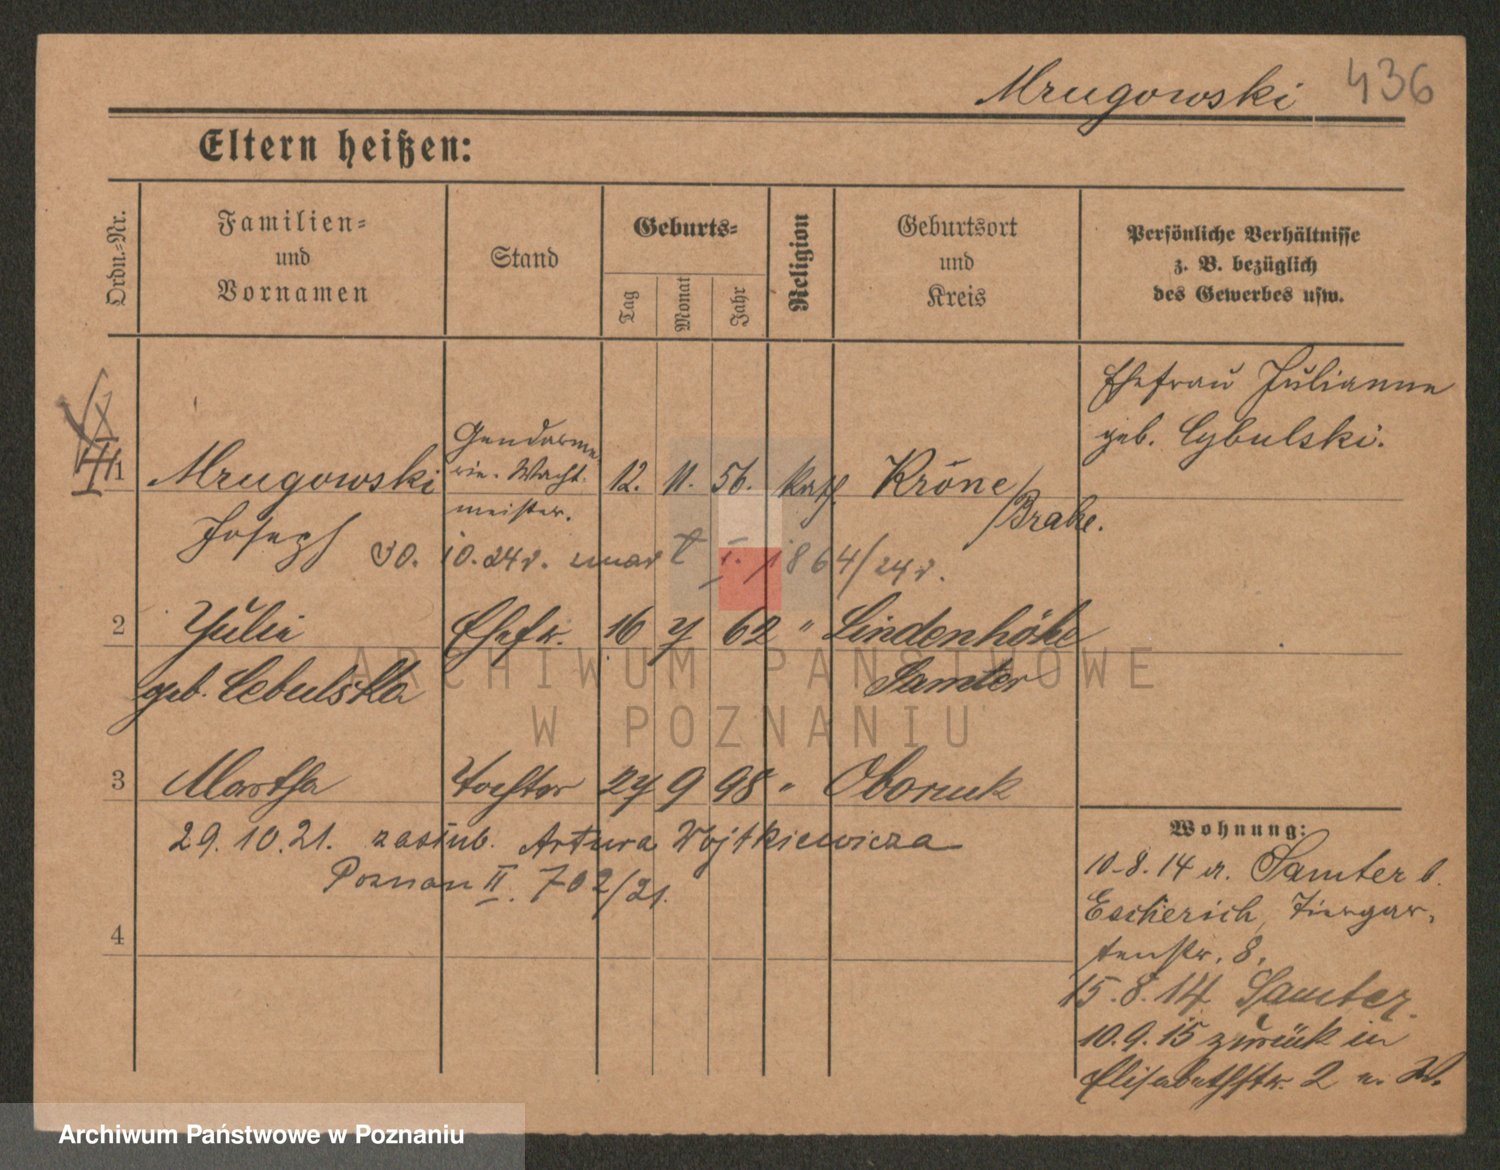 Mrugowski 436
Eltern heißen:
Ordn.-Nr.
Familien-
und
Vornamen
Stand
Geburts-
Tag
Monat
Jahr
Religion
Geburtsort
und
Kreis
Persönliche Verhältnisse
z. B. bezüglich
des Gewerbes usw.
Ehefrau Julianne
geb. Cybulski.
1 Mrugowski Gendarme-
rie-Wacht-
meister. 12. 11. 56. kath. Kröne/
Brahe.
Joseph 30. 10. 24 r. zmarł I. 1864/24 r.
2 Julie Ehefr. 16 7 62 " Lindenhöhe
geb. Cebulska Samter
3 Martha Tochter 27 9 98 " Obornik
29.10.21. zaślub. Artura Wojtkiewicza
Poznań II. 702/21.
4
Wohnung:
10.8.14 a. Samter b.
Escherich, Tiergar-
tenstr. 8.
15.8.14 Samter.
10.9.15 zurück in
Elisabethstr. 2
ARCHIWUM PAŃSTWOWE
W POZNANIU
Archiwum Państwowe w Poznaniu